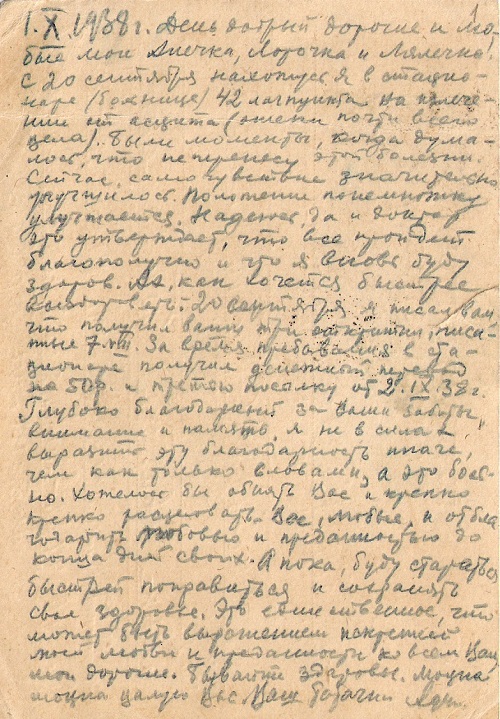 1.X 1938 г. День добрый дорогие и лю-
бые мои Анечка, Лорочка и Лялечка!
С 20 сентября нахожусь я в стацио-
наре (больнице) 42 лагпункта на излече-
нии от асцита (отеки почти всего
тела). Были моменты, когда дума-
лось, что не перенесу этой болезни.
Сейчас, самочувствие значительно
улучшилось. Положение понемножку
улучшается. Надеюсь, да и доктор
это утверждает, что все пройдет
благополучно и что я вновь буду
здоров. Ах, как хочется быстрее
выздороветь. 20 сентября я писал вам,
что получил ваши три открытки, писа-
нные 7.VIII. За время пребывания в ста-
ционаре получил денежный перевод
на 50 р. и третью посылку от 2.IX.38 г.
Глубоко благодарен за Ваши заботы,
внимание и память, я не в силах
выразить эту благодарность иначе,
чем как только словами, а это
но. Хотелось бы обнять Вас и крепко
крепко расцеловать Вас, любые, и отбла-
годарить любовью и преданностью до
конца дней своих. А пока, буду стараться
быстрей поправиться и сохранять
свое здоровье. Это единственное, что
может быть выражением искренней
моей любви и преданности ко всем Вам
мои дорогие. Бывайте здоровы. Моцна
моцна целую Вас Ваш